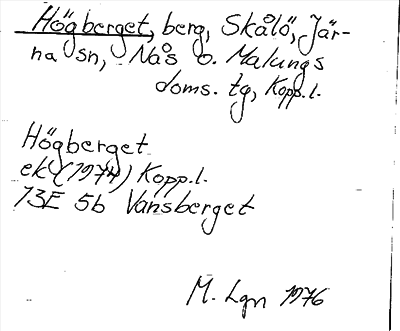 Högberget, berg, Skålö, Jär-
na sn, Nås o. Malungs
doms. tg, Kopp.l.
Högberget
ek (1974) Kopp.l.
13E 5b Vansberget
M. Lgn 1976